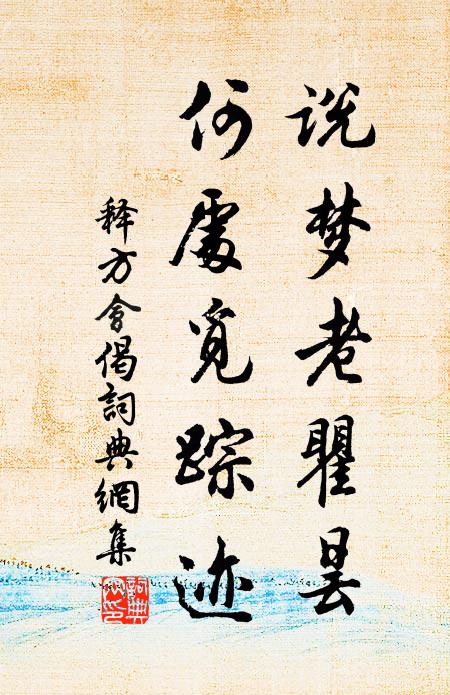 说梦老瞿昙
何处觅踪迹
释方会偈词典网集